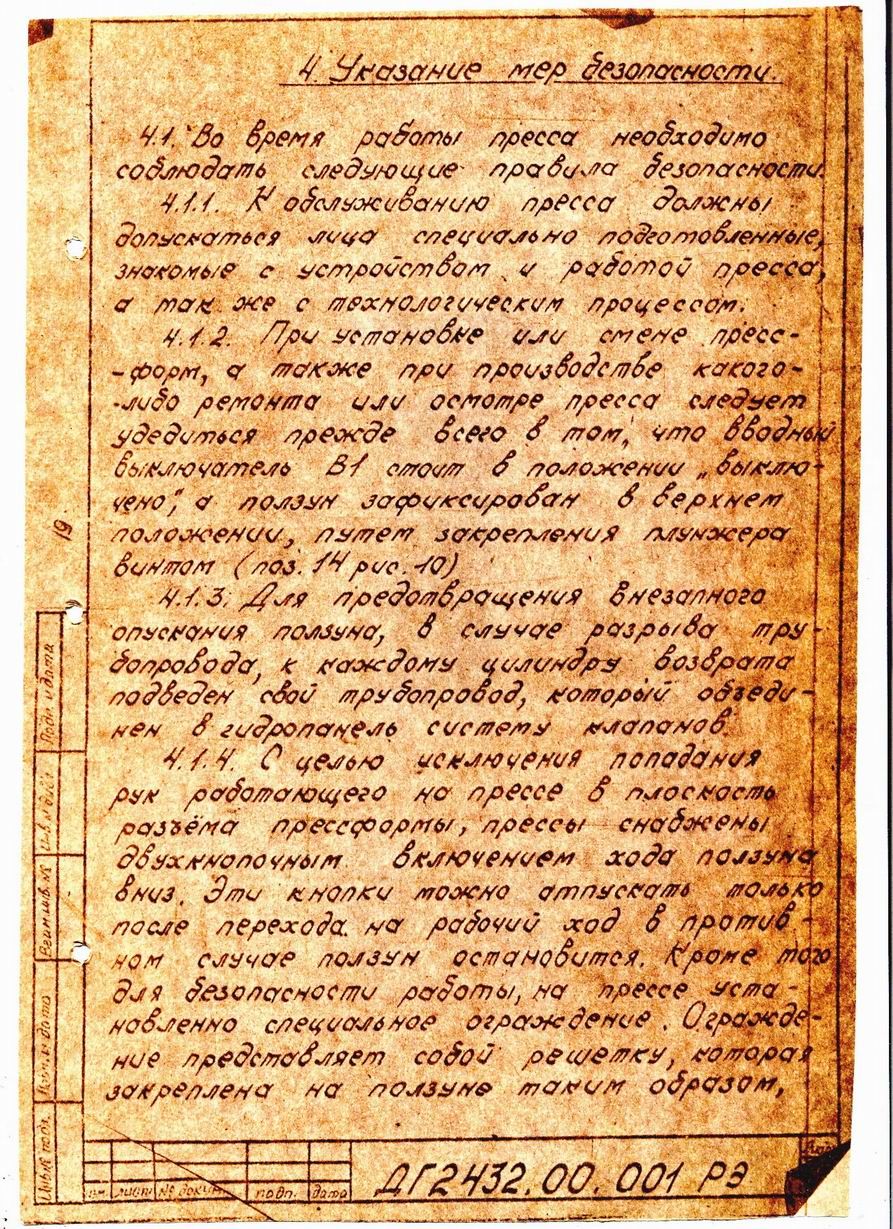 4. Указание мер безопасности.
4.1. Во время работы пресса необходимо
соблюдать следующие правила безопасности.
4.1.1. К обслуживанию пресса должны
допускаться лица специально подготовленные,
знакомые с устройством и работой пресса,
а так же с технологическим процессом.
4.1.2. При установке или смене пресс-
-форм, а также при производстве какого-
-либо ремонта или осмотре пресса следует
убедиться прежде всего в том, что вводный
выключатель В1 стоит в положении „выклю-
чено", а ползун зафиксирован в верхнем
положении, путем закрепления плунжера
винтом (поз. 14 рис. 10)
4.1.3. Для предотвращения внезапного
опускания ползуна, в случае разрыва тру-
бопровода, к каждому цилиндру возврата
подведен свой трубопровод, который объеди-
нен в гидропанель систему клапанов.
4.1.4. С целью исключения попадания
рук работающего на прессе в плоскость
разъёма прессформы, прессы снабжены
двухкнопочным включением хода ползуна
вниз. Эти кнопки можно отпускать только
после перехода на рабочий ход в против-
ном случае ползун остановится. Кроме того
для безопасности работы, на прессе уста-
новленно специальное ограждение. Огражде-
ние представляет собой решетку, которая
закреплена на ползуне таким образом,
19
Подп. и дата
Инв.№ дубл.
Взам.инв.№
Подп. и дата
Инв.№ подл.
изм. лист № докум. подп. дата
ДГ2432.00.001 РЭ